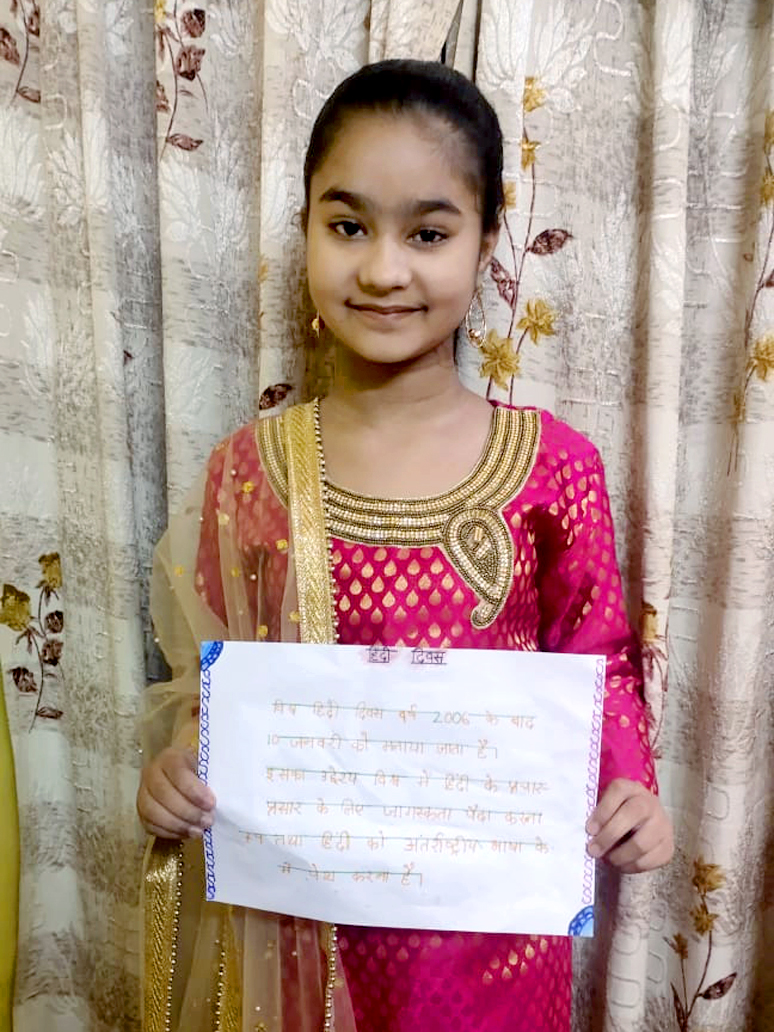 हिंदी दिवस
विश्व हिंदी दिवस वर्ष 2006 के बाद
10 जनवरी को मनाया जाता है।
इसका उद्देश्य विश्व में हिंदी के प्रचार-
प्रसार के लिए जागरूकता पैदा करना
तथा हिंदी को अंतर्राष्ट्रीय भाषा के
में पेश करना है।